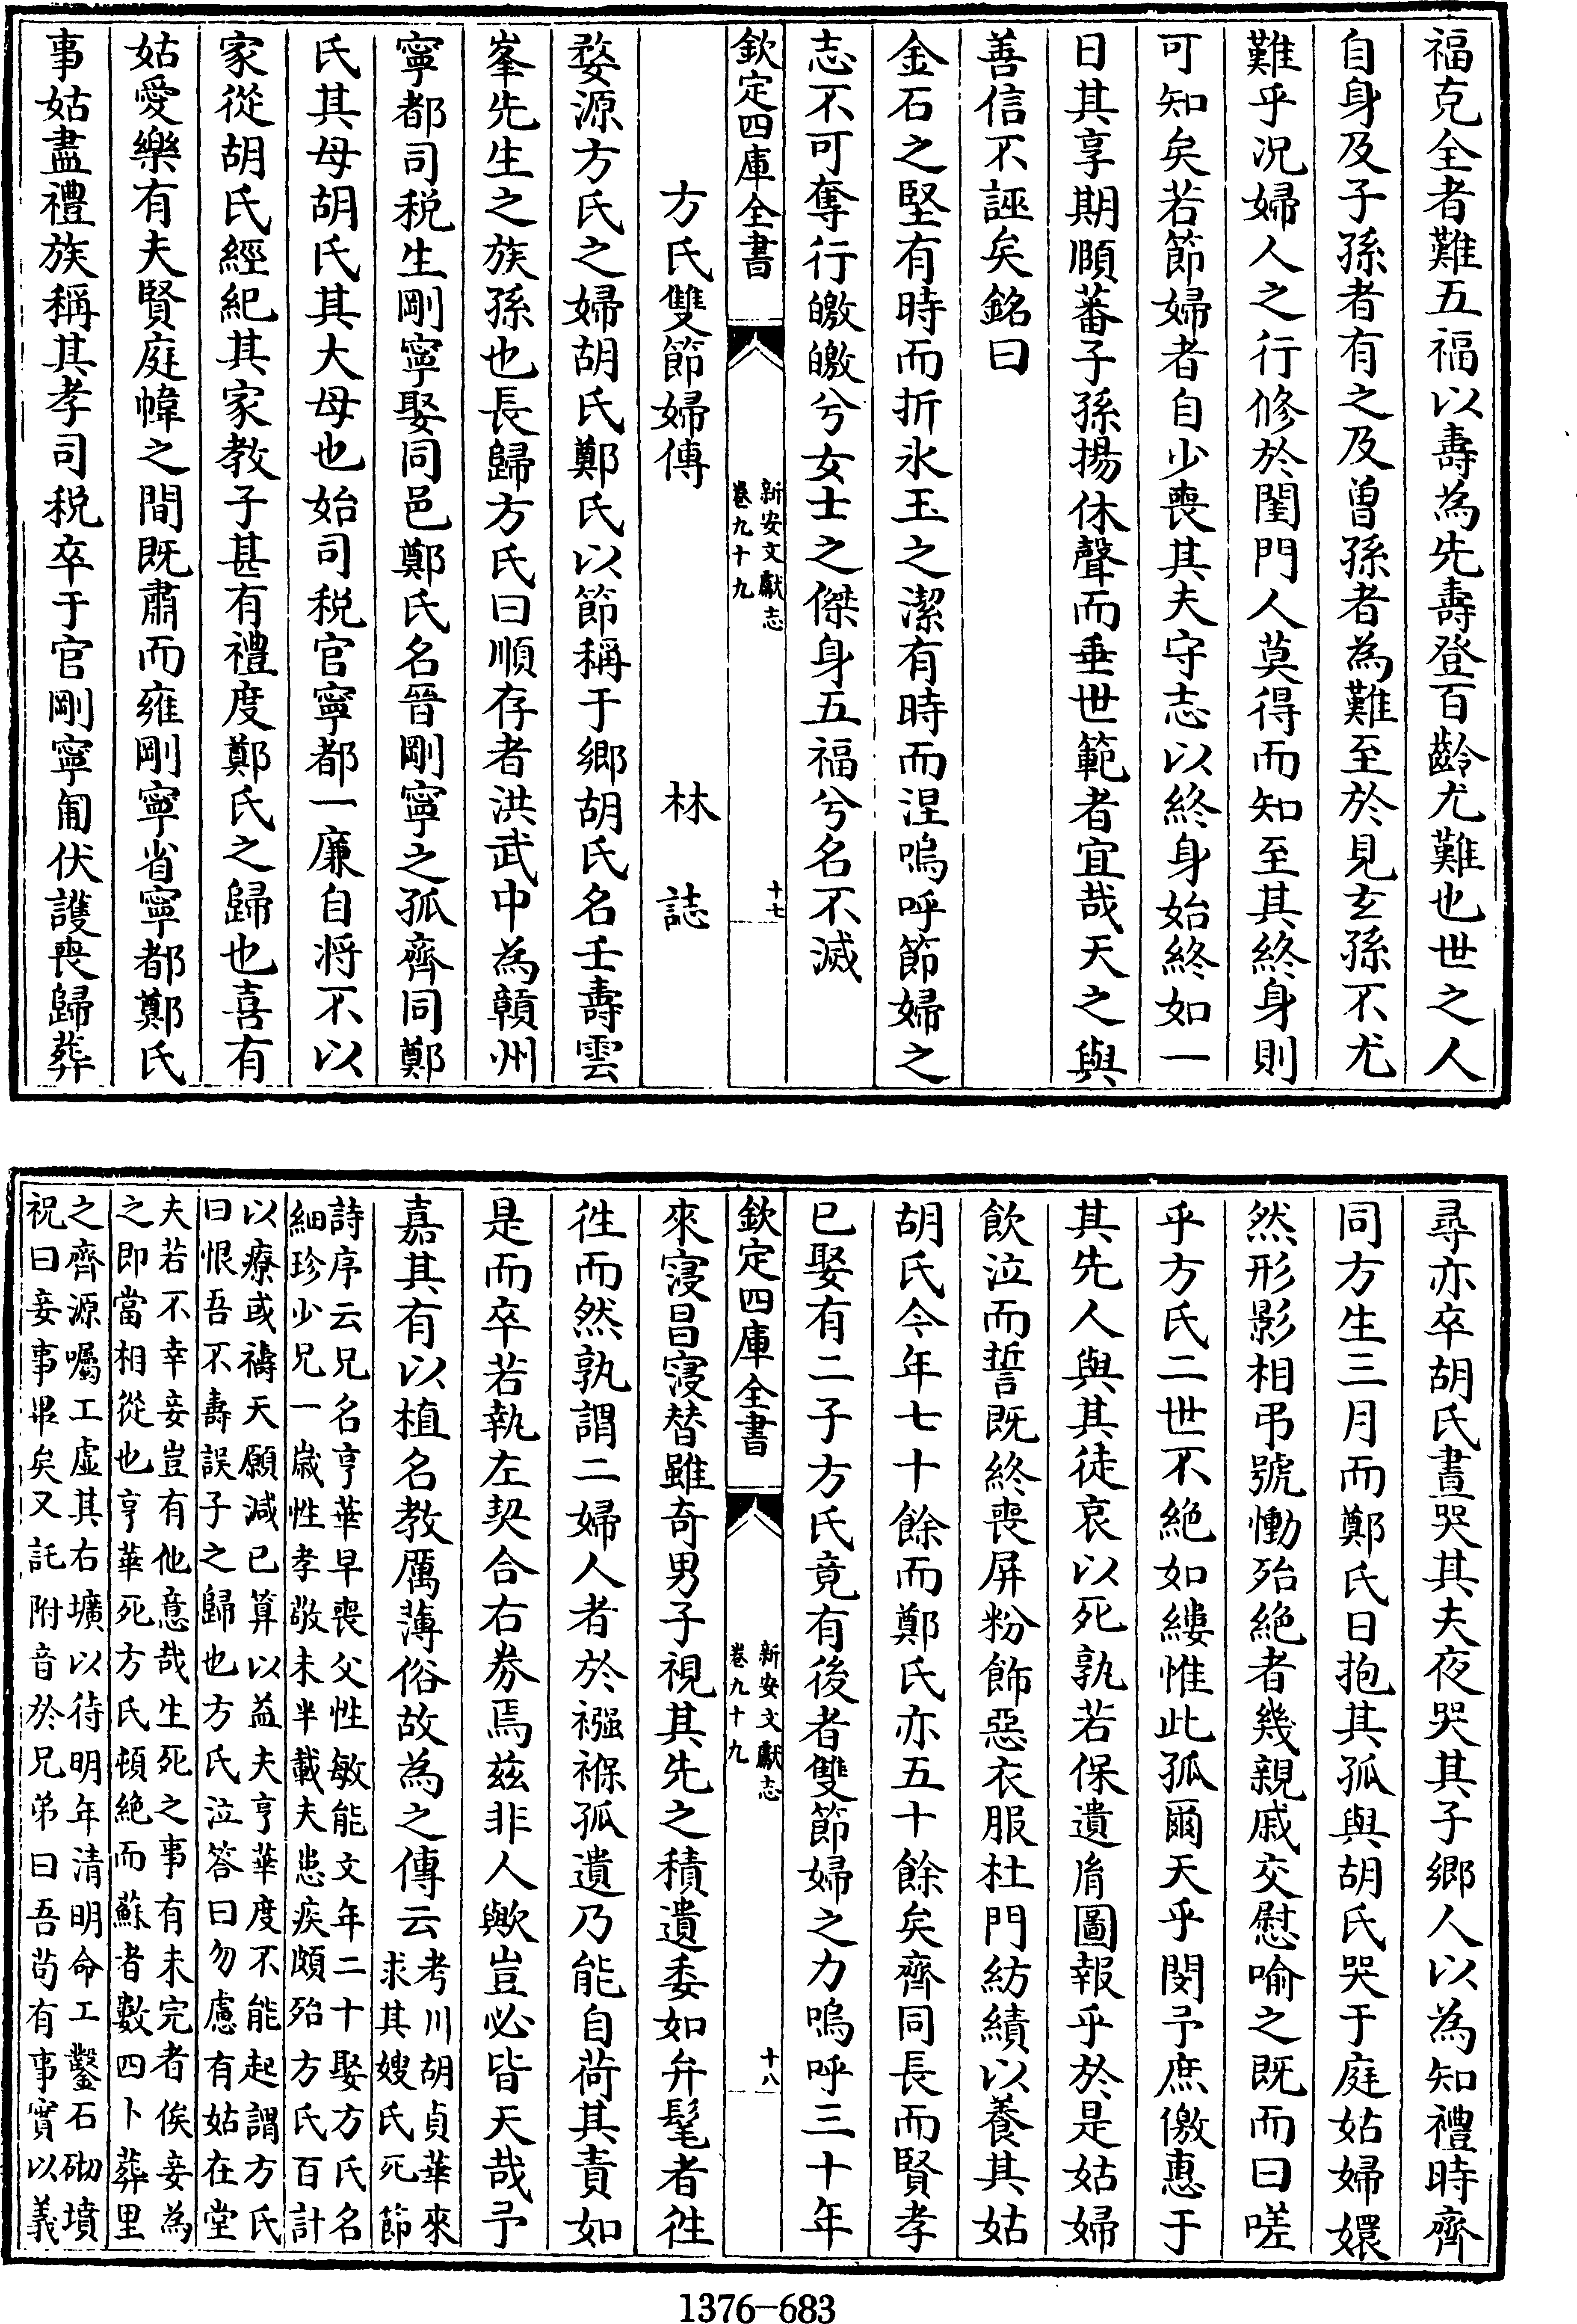 福克全者難五福以壽為先壽登百齡尤難也世之人
自身及子孫者有之及曾孫者為難至於見玄孫不尤
難乎況婦人之行修於閨門人莫得而知至其終身則
可知矣若節婦者自少喪其夫守志以終身始終如一
日其享期頤蕃子孫揚休聲而垂世範者宜哉天之與
善信不誣矣銘曰
金石之堅有時而折氷玉之潔有時而涅嗚呼節婦之
志不可奪行皦皦兮女士之傑身五福兮名不滅
欽定四庫全書
新安文獻志
卷九十九
十七
方氏雙節婦傳 林誌
婺源方氏之婦胡氏鄭氏以節稱于鄉胡氏名壬壽雲
峯先生之族孫也長歸方氏曰順存者洪武中為贑州
寧都司税生剛寧娶同邑鄭氏名晉剛寧之孤齊同鄭
氏其母胡氏其大母也始司税官寧都一廉自将不以
家從胡氏經紀其家教子甚有禮度鄭氏之歸也喜有
姑愛樂有夫賢庭幃之間既肅而雍剛寧省寧都鄭氏
事姑盡禮族稱其孝司税卒于官剛寧匍伏護喪歸葬
尋亦卒胡氏晝哭其夫夜哭其子鄉人以為知禮時齊
同方生三月而鄭氏日抱其孤與胡氏哭于庭姑婦嬛
然形影相弔號慟殆絶者幾親戚交慰喻之既而曰嗟
乎方氏二世不絶如縷惟此孤爾天乎閔予庶僥惠于
其先人與其徒哀以死孰若保遺胤圖報乎於是姑婦
飲泣而誓既終喪屏粉飾惡衣服杜門紡績以養其姑
胡氏今年七十餘而鄭氏亦五十餘矣齊同長而賢孝
已娶有二子方氏竟有後者雙節婦之力嗚呼三十年
欽定四庫全書
新安文獻志
卷九十九
十八
來寖昌寖替雖奇男子視其先之積遺委如弁髦者徃
徃而然孰謂二婦人者於襁褓孤遺乃能自荷其責如
是而卒若執左契合右券焉兹非人歟豈必皆天哉予
嘉其有以植名教厲薄俗故為之傳云
考川胡貞華來
求其嫂氏死節
詩序云兄名亨華早喪父性敏能文年二十娶方氏名
細珍少兄一歲性孝敬未半載夫患疾頗殆方氏百計
以療或禱天願減已算以益夫亨華度不能起謂方氏
曰恨吾不壽誤子之歸也方氏泣答曰勿慮有姑在堂
夫若不幸妾豈有他意哉生死之事有未完者俟妾為
之即當相從也亨華死方氏頓絶而蘇者數四卜葬里
之齊源囑工虚其右壙以待明年清明命工鑿石砌墳
祝曰妾事畢矣又託附音於兄弟曰吾苟有事實以義
1376-683